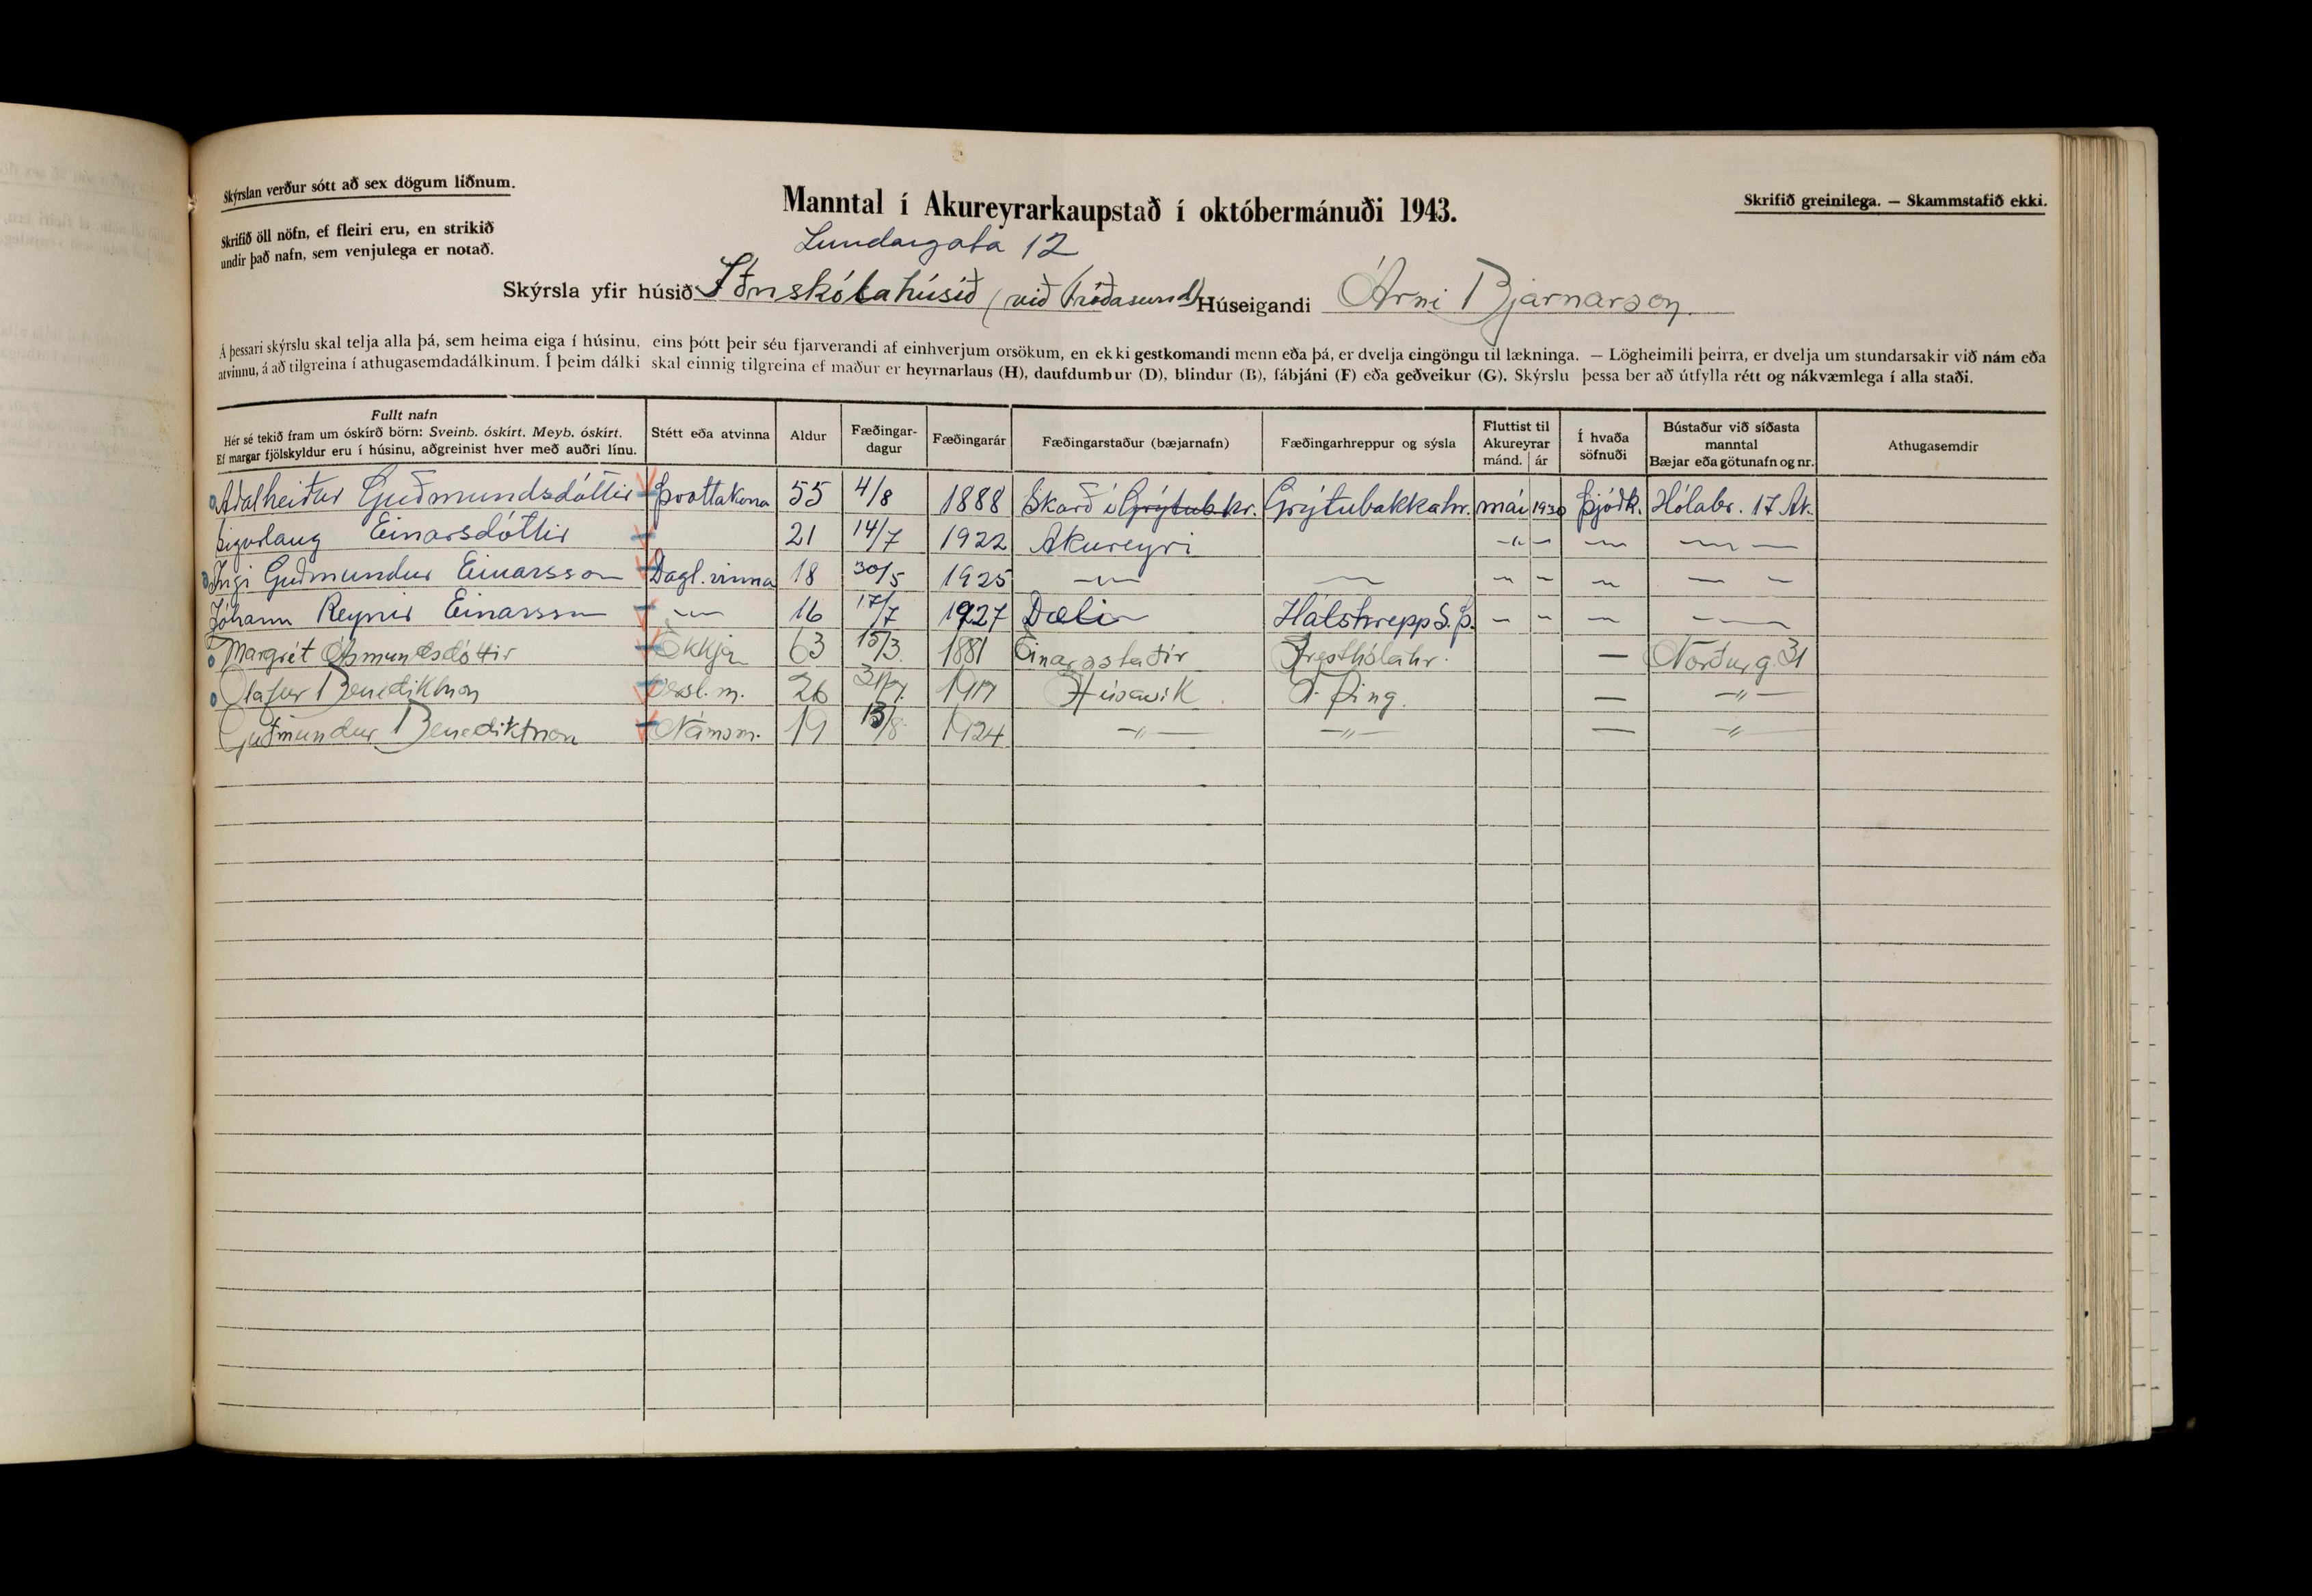 Skýrslan verður sótt að sex dögum liðnum.
Skrifið öll nöfn, ef fleiri eru, en strikið
undir það nafn, sem venjulega er notað.
Manntal í Akureyrarkaupstað í októbermánuði 1943.
Skrifið greinilega. — Skammstafið ekki.
Lundargata 12
Skýrsla yfir húsið Iðnskólahúsið (við Gróðasund) Húseigandi Árni Bjarnarson
Á þessari skýrslu skal telja alla þá, sem heima eiga í húsinu, eins þótt þeir séu fjarverandi af einhverjum orsökum, en ekki gestkomandi menn eða þá, er dvelja eingöngu til lækninga. — Lögheimili þeirra, er dvelja um stundarsakir við nám eða
atvinnu, á að tilgreina í athugasemdadálkinum. Í þeim dálki skal einnig tilgreina ef maður er heyrnarlaus (H), daufdumbur (D), blindur (B), fábjáni (F) eða geðveikur (G). Skýrslu þessa ber að útfylla rétt og nákvæmlega í alla staði.
Fullt nafn
Hér sé tekið fram um óskírð börn: Sveinb. óskírt. Meyb. óskírt.
Ef margar fjölskyldur eru í húsinu, aðgreinist hver með auðri línu.
Stétt eða atvinna
Aldur
Fæðingar-
dagur
Fæðingarár
Fæðingarstaður (bæjarnafn)
Fæðingarhreppur og sýsla
Fluttist til
Akureyrar
mánd. ár
Í hvaða
söfnuði
Bústaður við síðasta
manntal
Bæjar eða götunafn og nr.
Athugasemdir
Aðalheiður Guðmundsdóttir Þvottakona 55 4/8 1888 Skarð í Grýtub.hr. Grýtubakkahr. mái 1930 Þjóðk. Hólabr. 17 Ak.
Sigurlaug Einarsdóttir 21 14/7 1922 Akureyri -"- — — — —
Ingi Guðmundur Einarsson Dagl.vinna 18 30/5 1925 -"- — — — — — —
Jóhann Reynir Einarsson -"- 16 17/7 1927 Dæli Hálshrepp S.Þ. — — — — —
Margrét Ásmundsdóttir Ekkja 63 15/3 1881 Einarsstaðir Presthólahr. — Norðurg. 31
Ólafur Benediktson Versl.m. 26 1917 Húsavík S. Þing. — -"-
Guðmundur Benediktson Námsm. 19 13/8 1924 -"- -"- — -"-